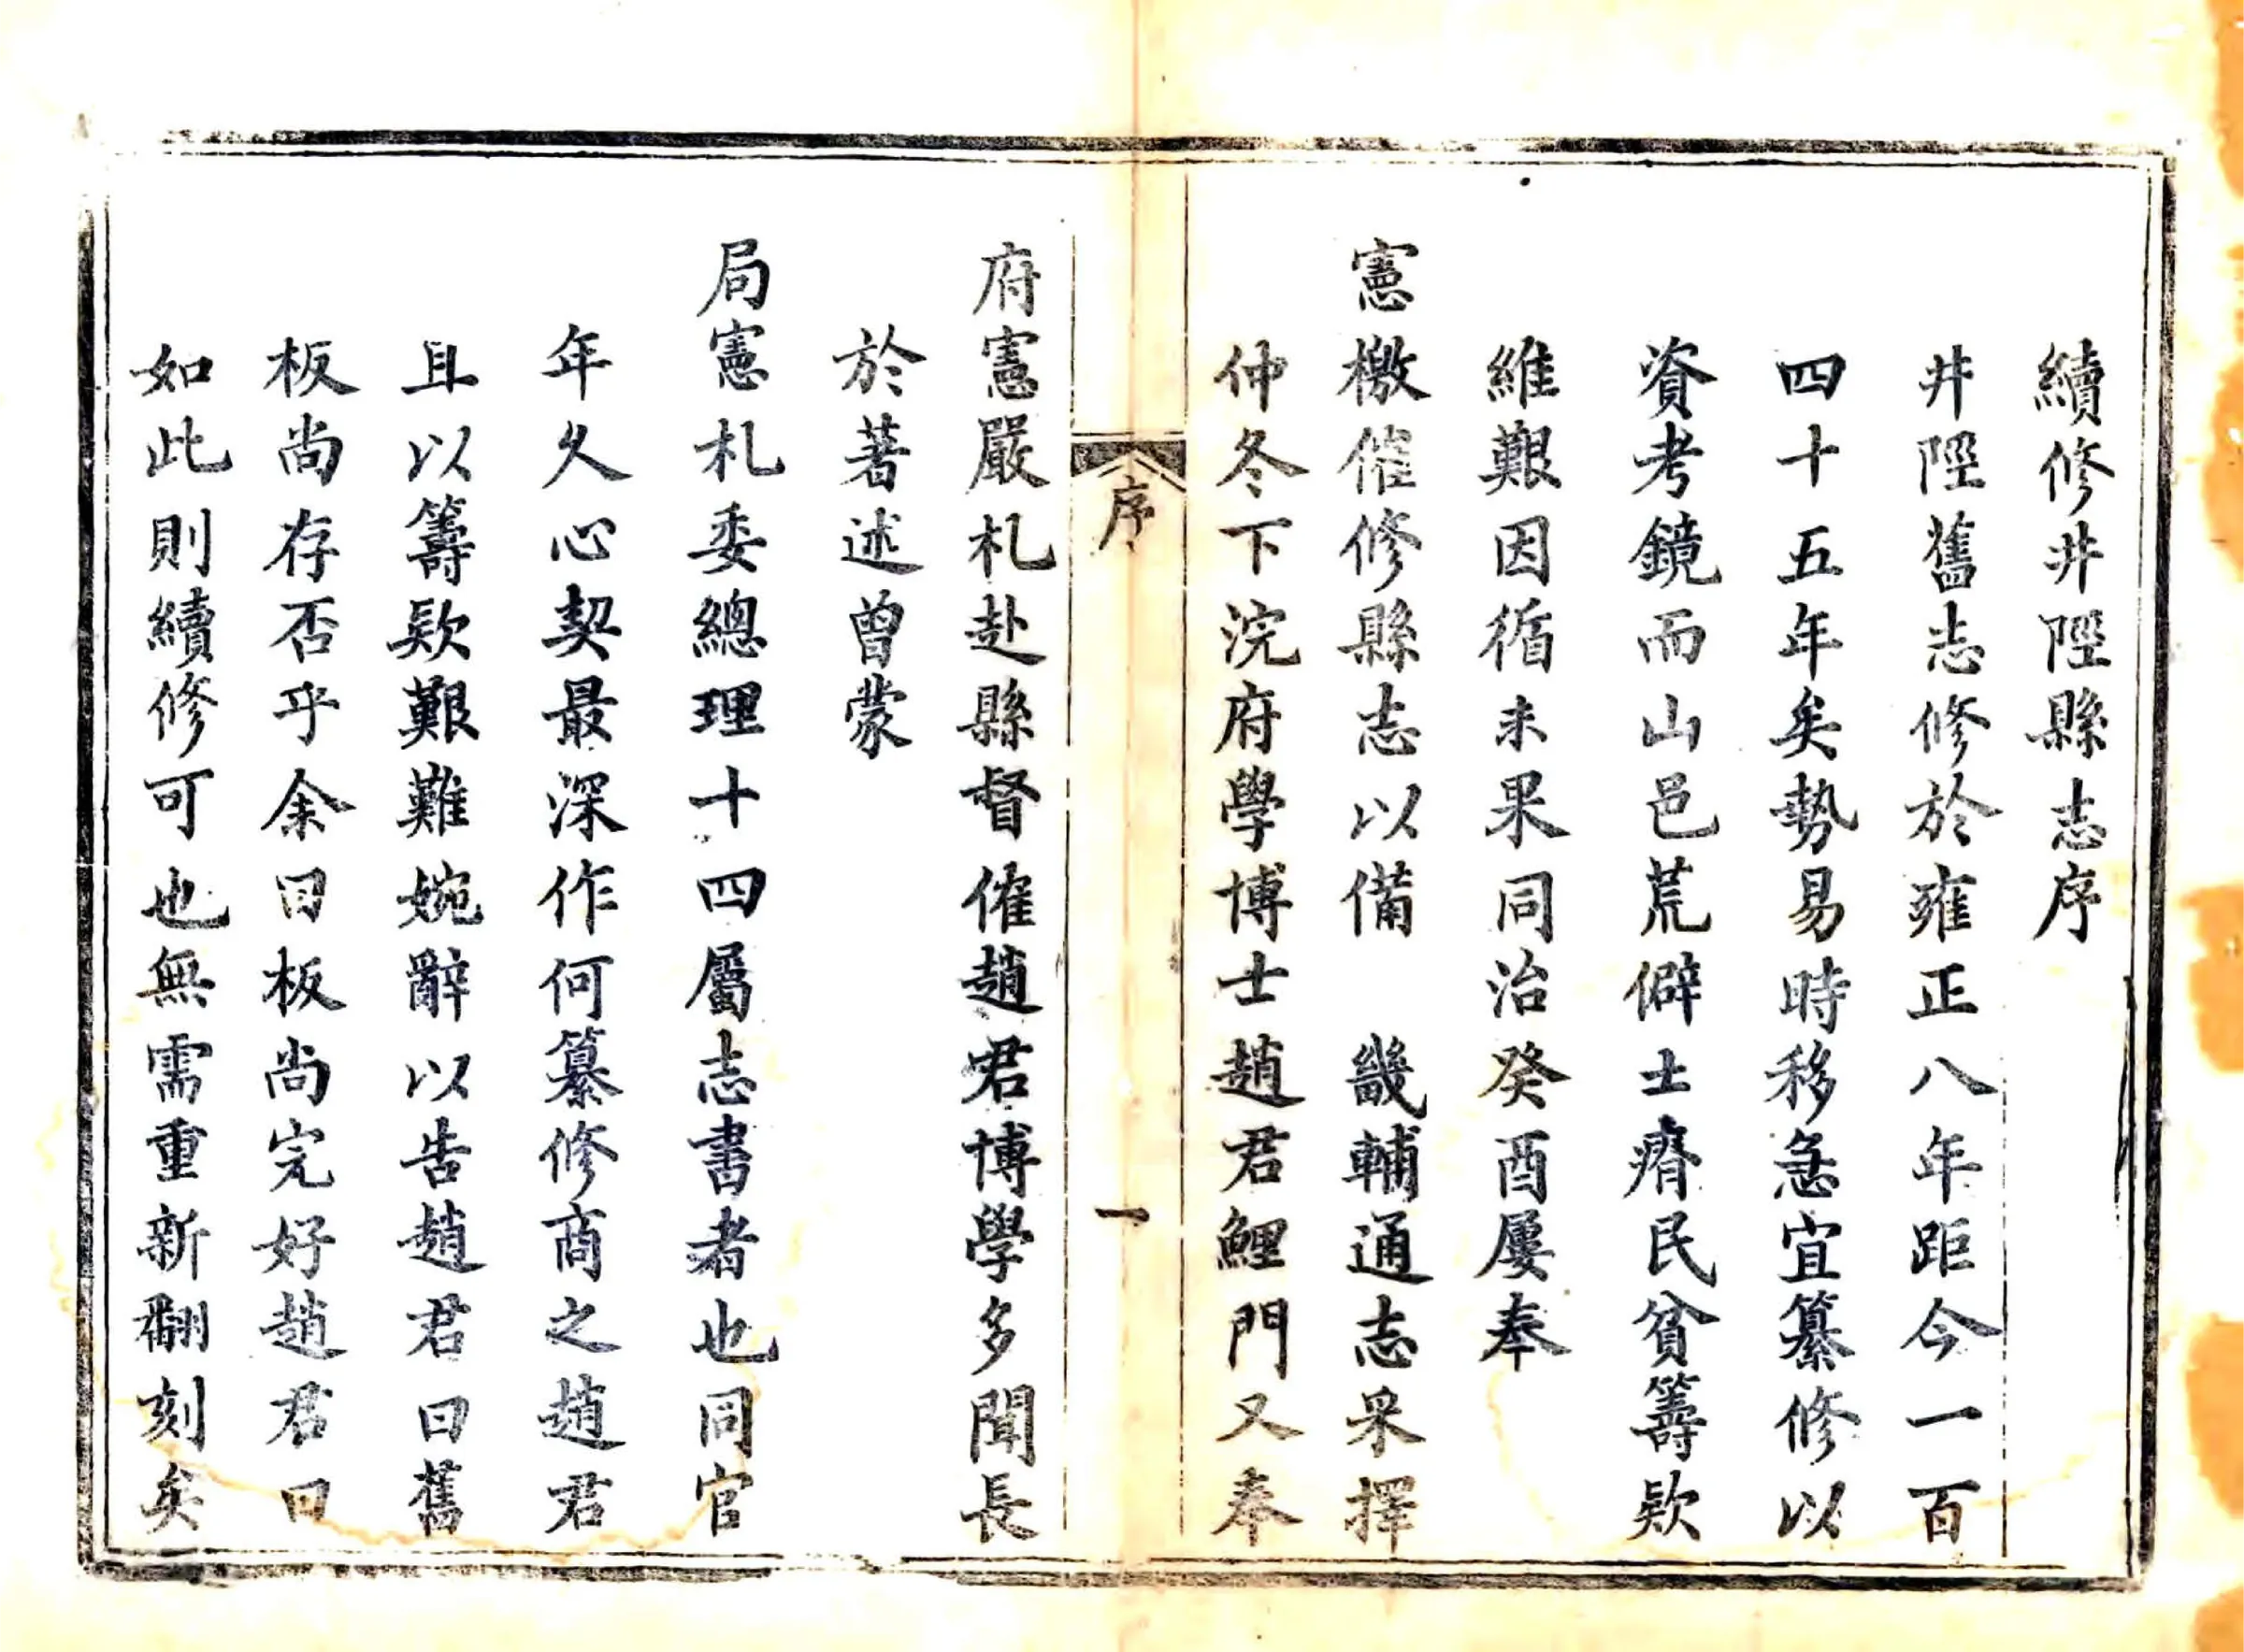 續修井陘縣志序
井陘舊志修於雍正八年距今一百
四十五年矣勢易時移急宜纂修以
資考鏡而山邑荒僻士瘠民貧籌欵
維艱因循未果同治癸酉屢奉
憲檄催修縣志以備 畿輔通志采擇
仲冬下浣府學博士趙君鯉門又奉
序
一
府憲嚴札赴縣督催趙君博學多聞長
於著述曾蒙
局憲札委總理十四屬志書者也同官
年久心契最深作何纂修商之趙君
且以籌欵艱難婉辭以告趙君曰舊
板尚存否乎余曰板尚完好趙君曰
如此則續修可也無需重新翻刻矣